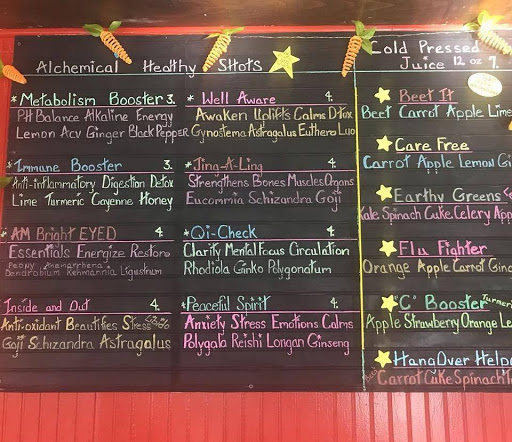 Alchemical Healthy Shots
*Metabolism Booster 3.
PH Balance Alkaline Energy
Lemon Acv Ginger Black Pepper
*Immune Booster 3.
Anti-inflammatory Digestion Detox
Lime Turmeric Cayenne Honey
*AM Bright EYED 4
Essentials Energize Restore
Peony Anemarrhena
Dendrobium Rehmannia Ligustrum
Inside and Out 4
Anti-oxidant Beautifies Stress
Goji Schizandra Astragalus
* Well Aware 4.
Awaken Uplifts Calms Dtox
Gynostema Astragalus Euthero Luo
*Jing-A-Ling 4.
Strengthens Bones Muscles Organs
Eucommia Schizandra Goji
*Qi-Check 4.
Clarity Mental Focus Circulation
Rhodiola Ginko Polygonatum
*Peaceful Spirit 4.
Anxiety Stress Emotions Calms
Polygala Reishi Longan Ginseng
Cold Pressed
Juice 12 oz 7.
Beet It
Beet Carrot Apple Lime
Care Free
Carrot Apple Lemon Gin
Earthy Greens
Kale Spinach Cuke Celery App
Flu Fighter
Orange Apple Carrot Gin
"C" Booster Turmeri
Apple Strawberry Orange Le
HangOver Helpe
Beet Carrot Cuke Spinach